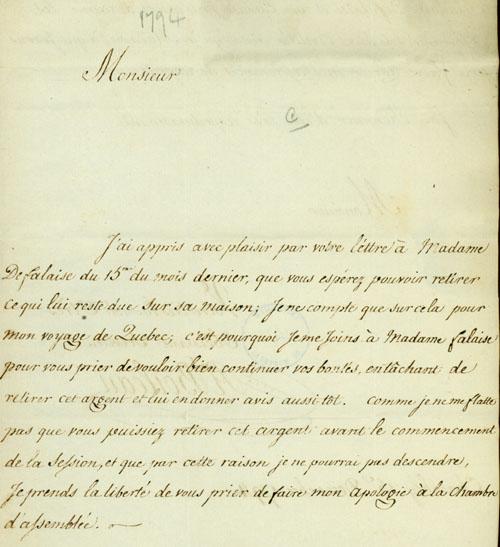 1794
Monsieur
C
J'ai appris avec plaisir par votre léttre à Madame
De falaise du 15me du mois dernier, que vous espérez pouvoir retirer
ce qui lui reste due sur sa maison; Je ne compte que sur cela pour
mon voyage de Quebec; c'est pourquoi Je me Joins à Madame falaise
pour vous prier de vouloir bien continuer vos bontés, en tâchant de
retirer cet argent et lui en donner avis aussi tot. Comme je ne me flatte
pas que vous puissiez retirer cet argent avant le commencement
de la Session, et que par cette raison je ne pourrai pas descendre,
Je prends la liberté de vous prier de faire mon apologie à la chambre
d'assemblée.